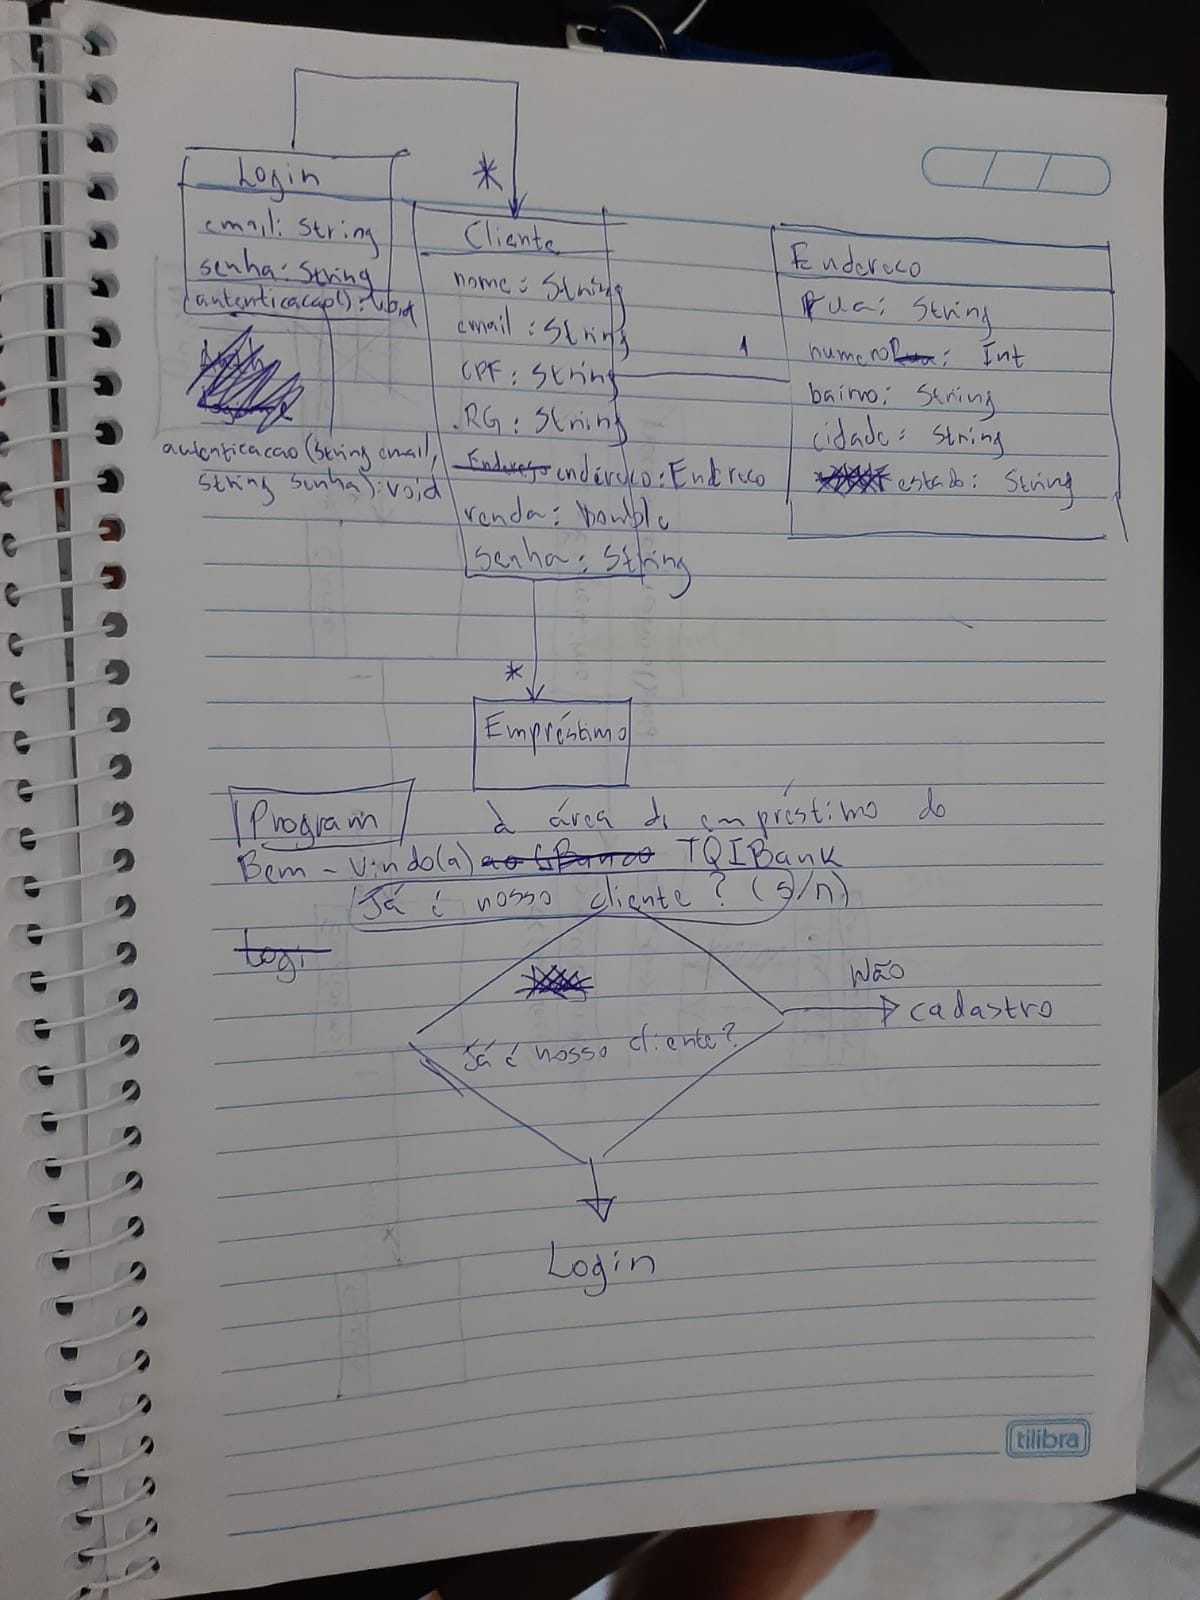 Login
email: String
senha: String
autenticacao(): void
autenticacao (String email,
String senha): void
*
Cliente
nome: String
email: String
CPF: String
RG: String
Endereço endereco: Endreco
renda: Double
senha: String
1
Endereco
rua: String
numero: Int
bairro: String
cidade: String
estado: String
*
Empréstimo
Program
à área de empréstimo do
Bem-vindo(a) ao Banco TQIBank
Já é nosso cliente? (s/n)
Logi
Já é nosso cliente?
Não
cadastro
Login
tilibra